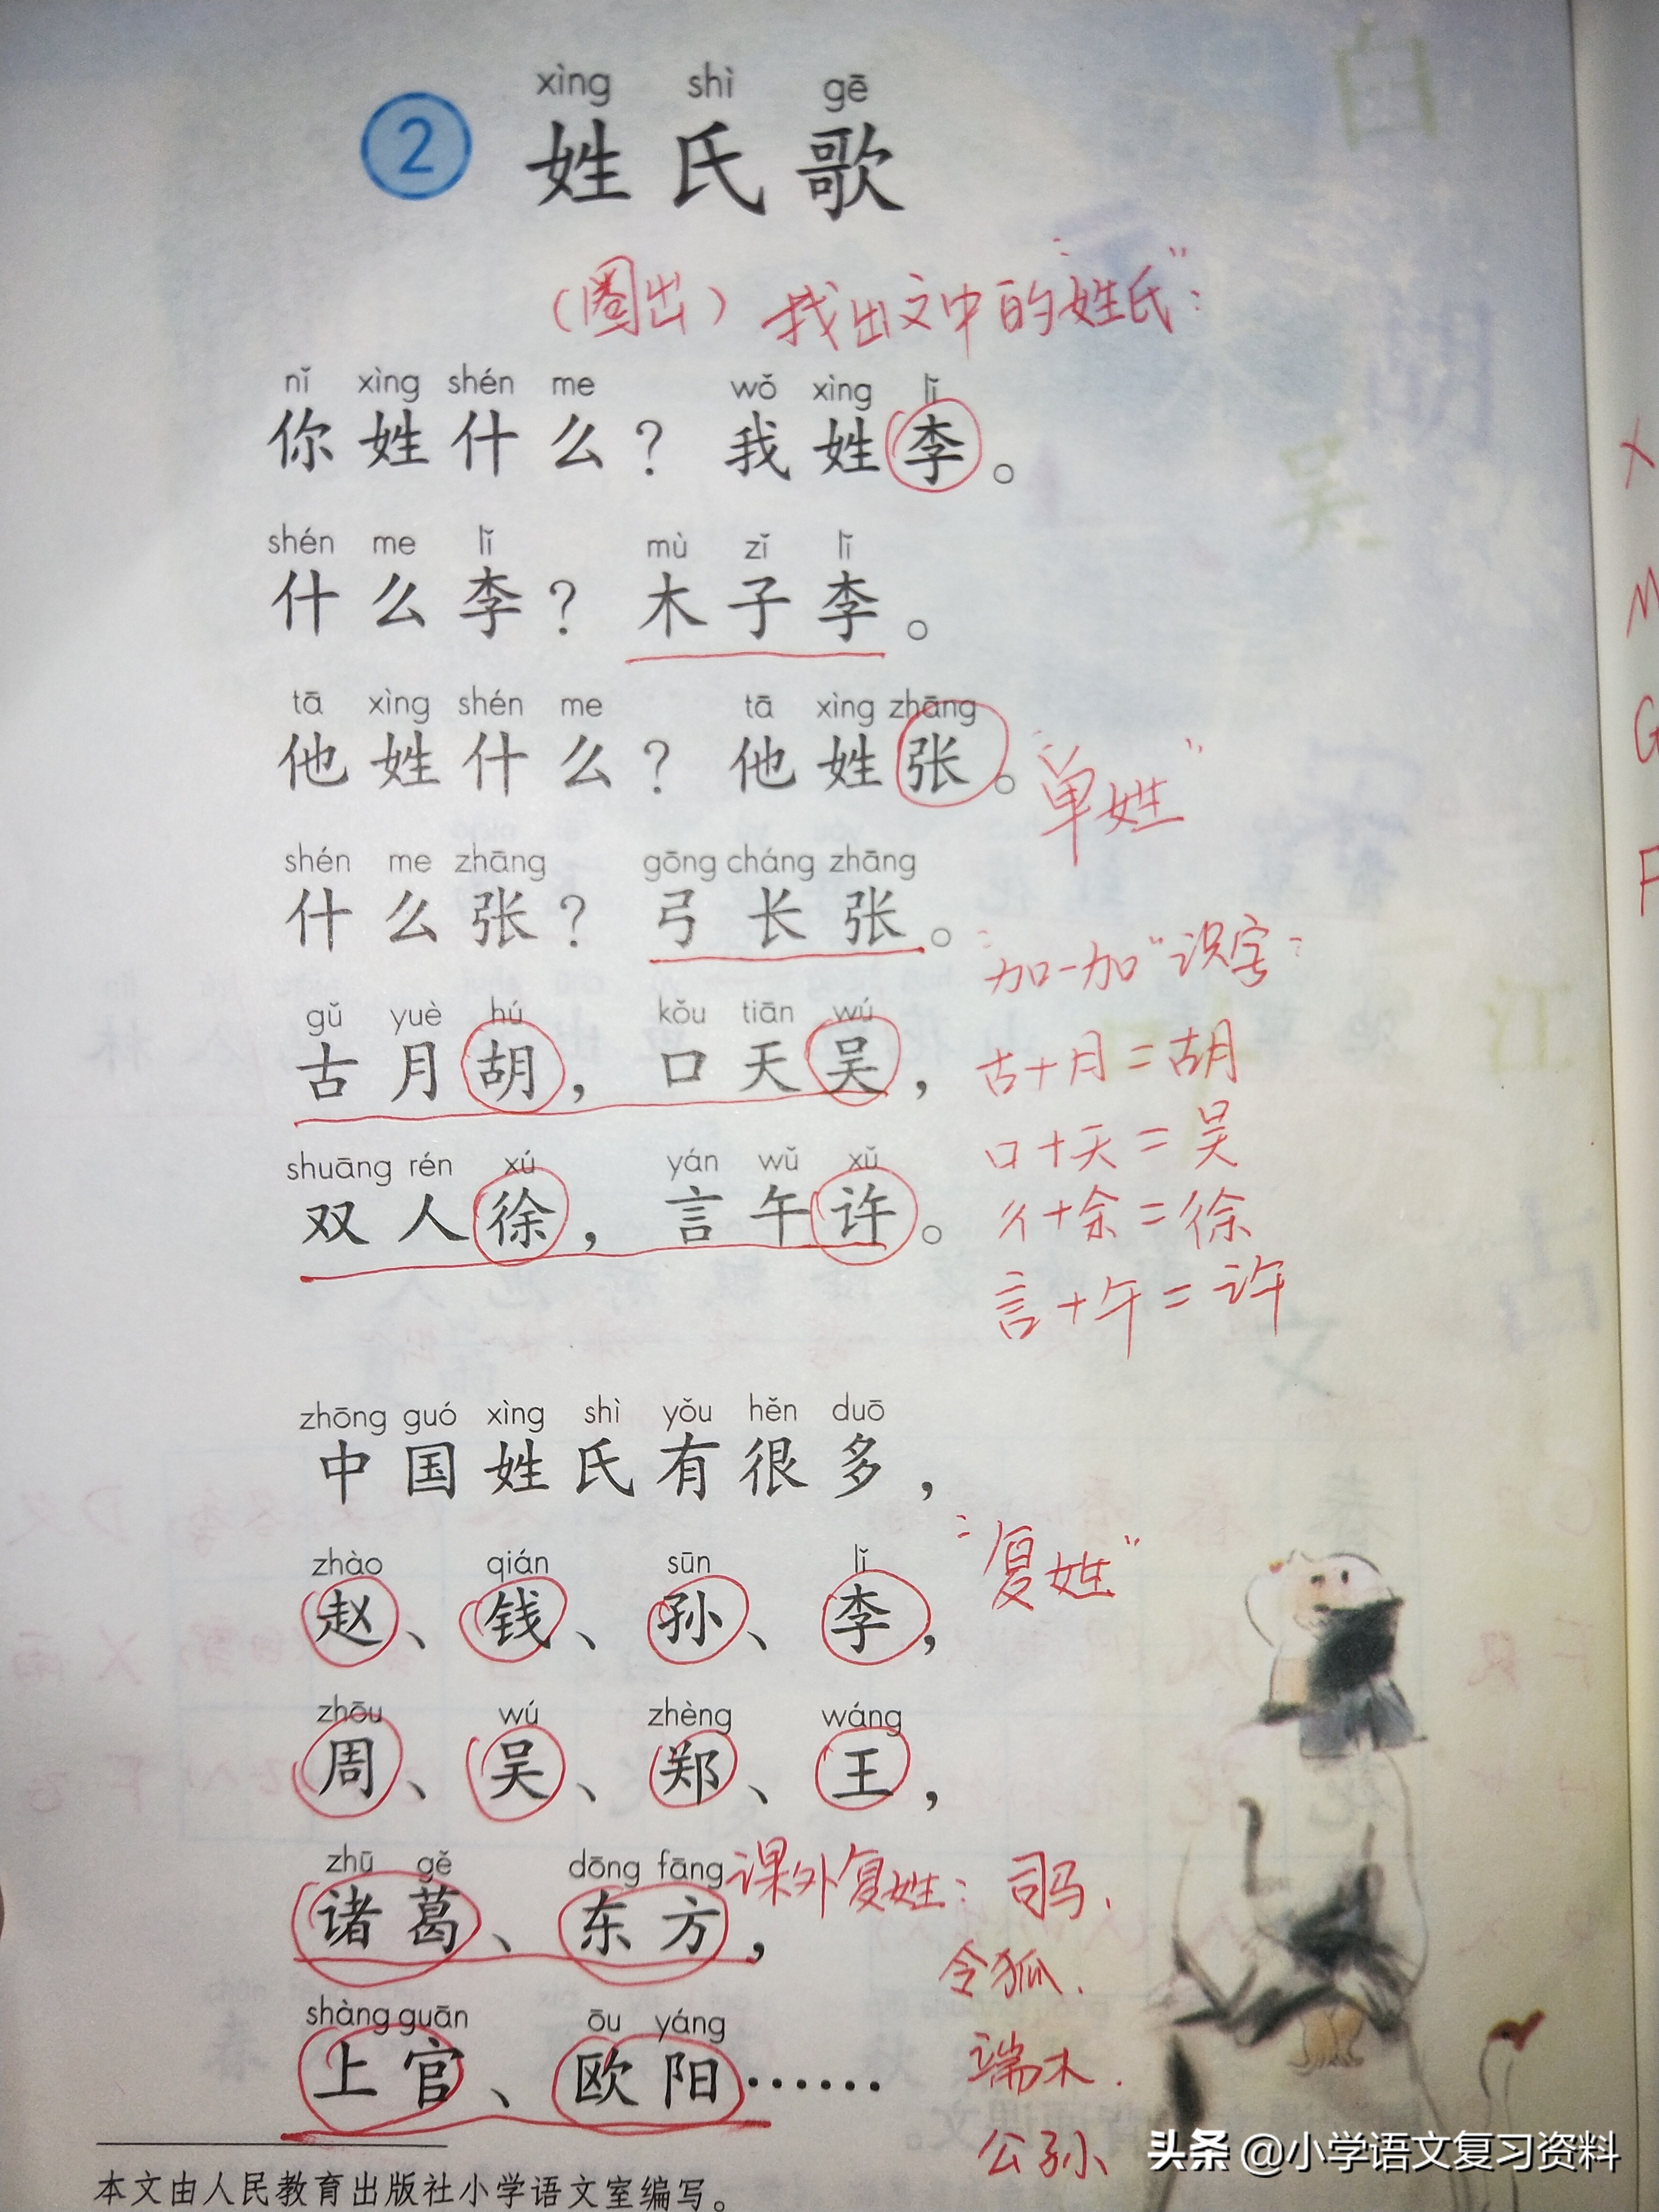 xìng shì gē
2 姓氏歌
（圈出）找出文中的"姓氏"：
nǐ xìng shén me wǒ xìng lǐ
你姓什么？我姓李。
shén me lǐ mù zǐ lǐ
什么李？木子李。
tā xìng shén me tā xìng zhāng
他姓什么？他姓张。
"单姓"
shén me zhāng gōng cháng zhāng
什么张？弓长张。
"加一加"识字：
gǔ yuè hú kǒu tiān wú
古月胡，口天吴，
古+月=胡
口+天=吴
shuāng rén xú yán wǔ xǔ
双人徐，言午许。
彳+余=徐
言+午=许
zhōng guó xìng shì yǒu hěn duō
中国姓氏有很多，
"复姓"
zhào qián sūn lǐ
赵、钱、孙、李，
zhōu wú zhèng wáng
周、吴、郑、王，
zhū gě dōng fāng
诸葛、东方，
课外复姓：司马、
令狐、
端木、
公孙
shàng guān ōu yáng
上官、欧阳……
本文由人民教育出版社小学语文室编写。
头条 @小学语文复习资料
白
吴
江
X
M
G
F